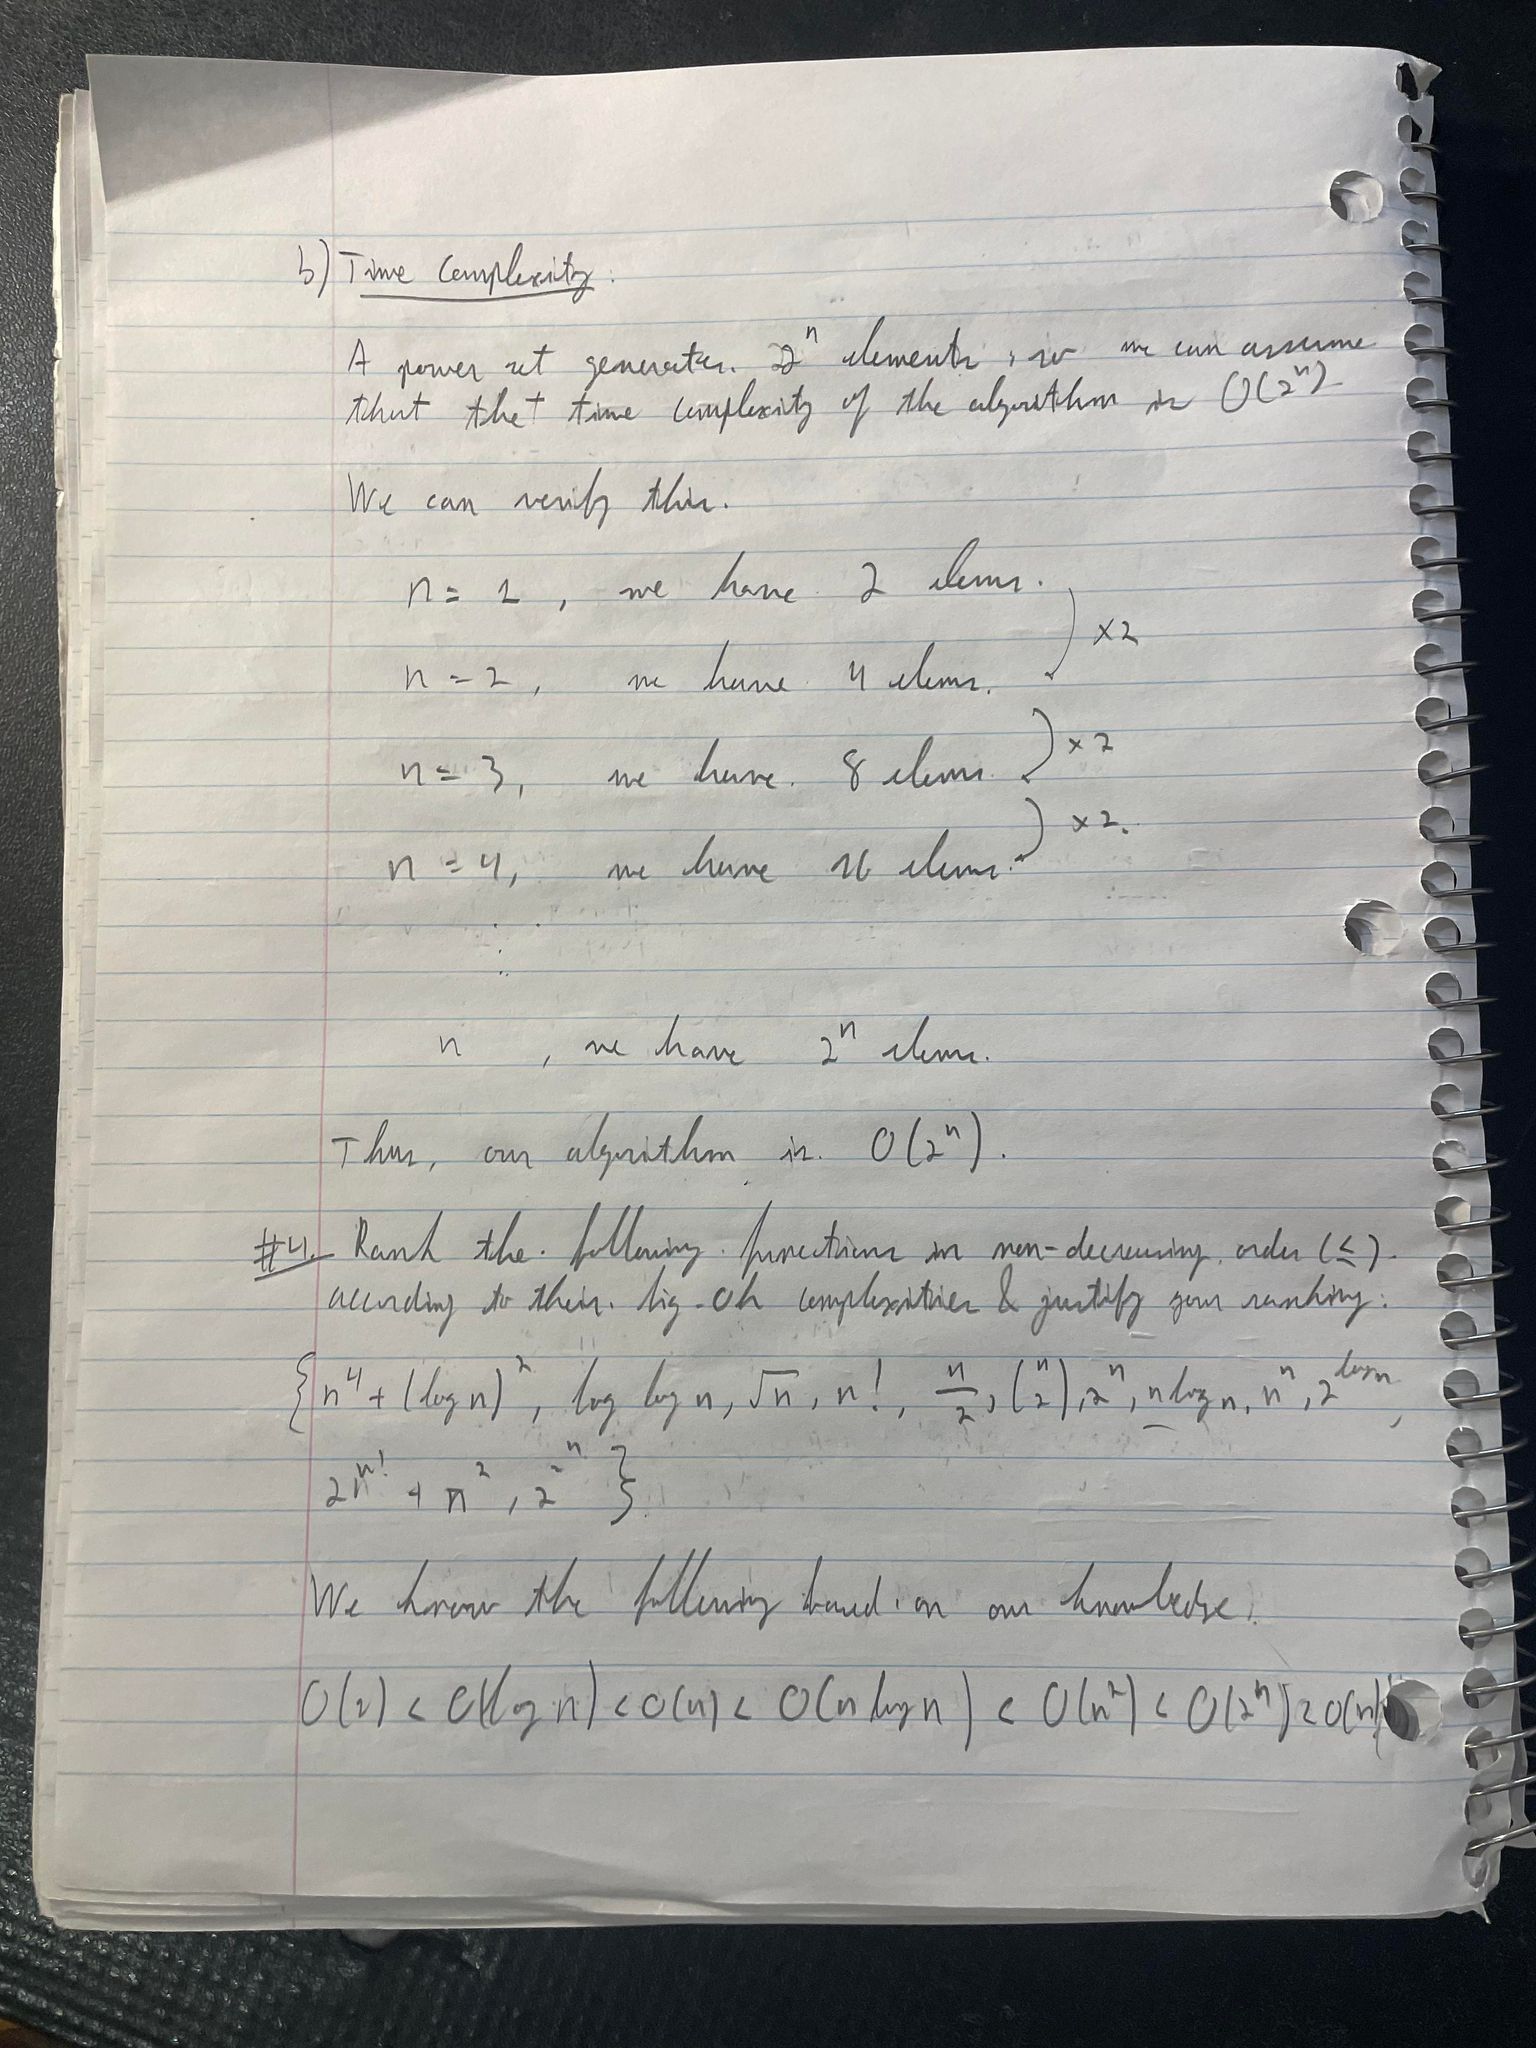 b) Time Complexity:
A power set generates 2^n elements, so we can assume
that the time complexity of the algorithm is O(2^n)
We can verify this.
n = 1, we have 2 elems. ×2
n = 2, we have 4 elems.
n = 3, we have 8 elems ×2
n = 4, we have 16 elems. ×2.
⋮
n, we have 2^n elems.
Thus, our algorithm is O(2^n).
#4. Rank the following functions in non-decreasing order (≤)
according to their big-Oh complexities & justify your ranking:
{n^4 + (log n)^2, log log n, √n, n!, n/2, (n 2), 2^n, n log n, n^n, 2^log n,
2n^n! + n^2, 2^2^n}
We know the following based on our knowledge:
O(1) < O(log n) < O(n) < O(n log n) < O(n^2) < O(2^n) < O(n!)